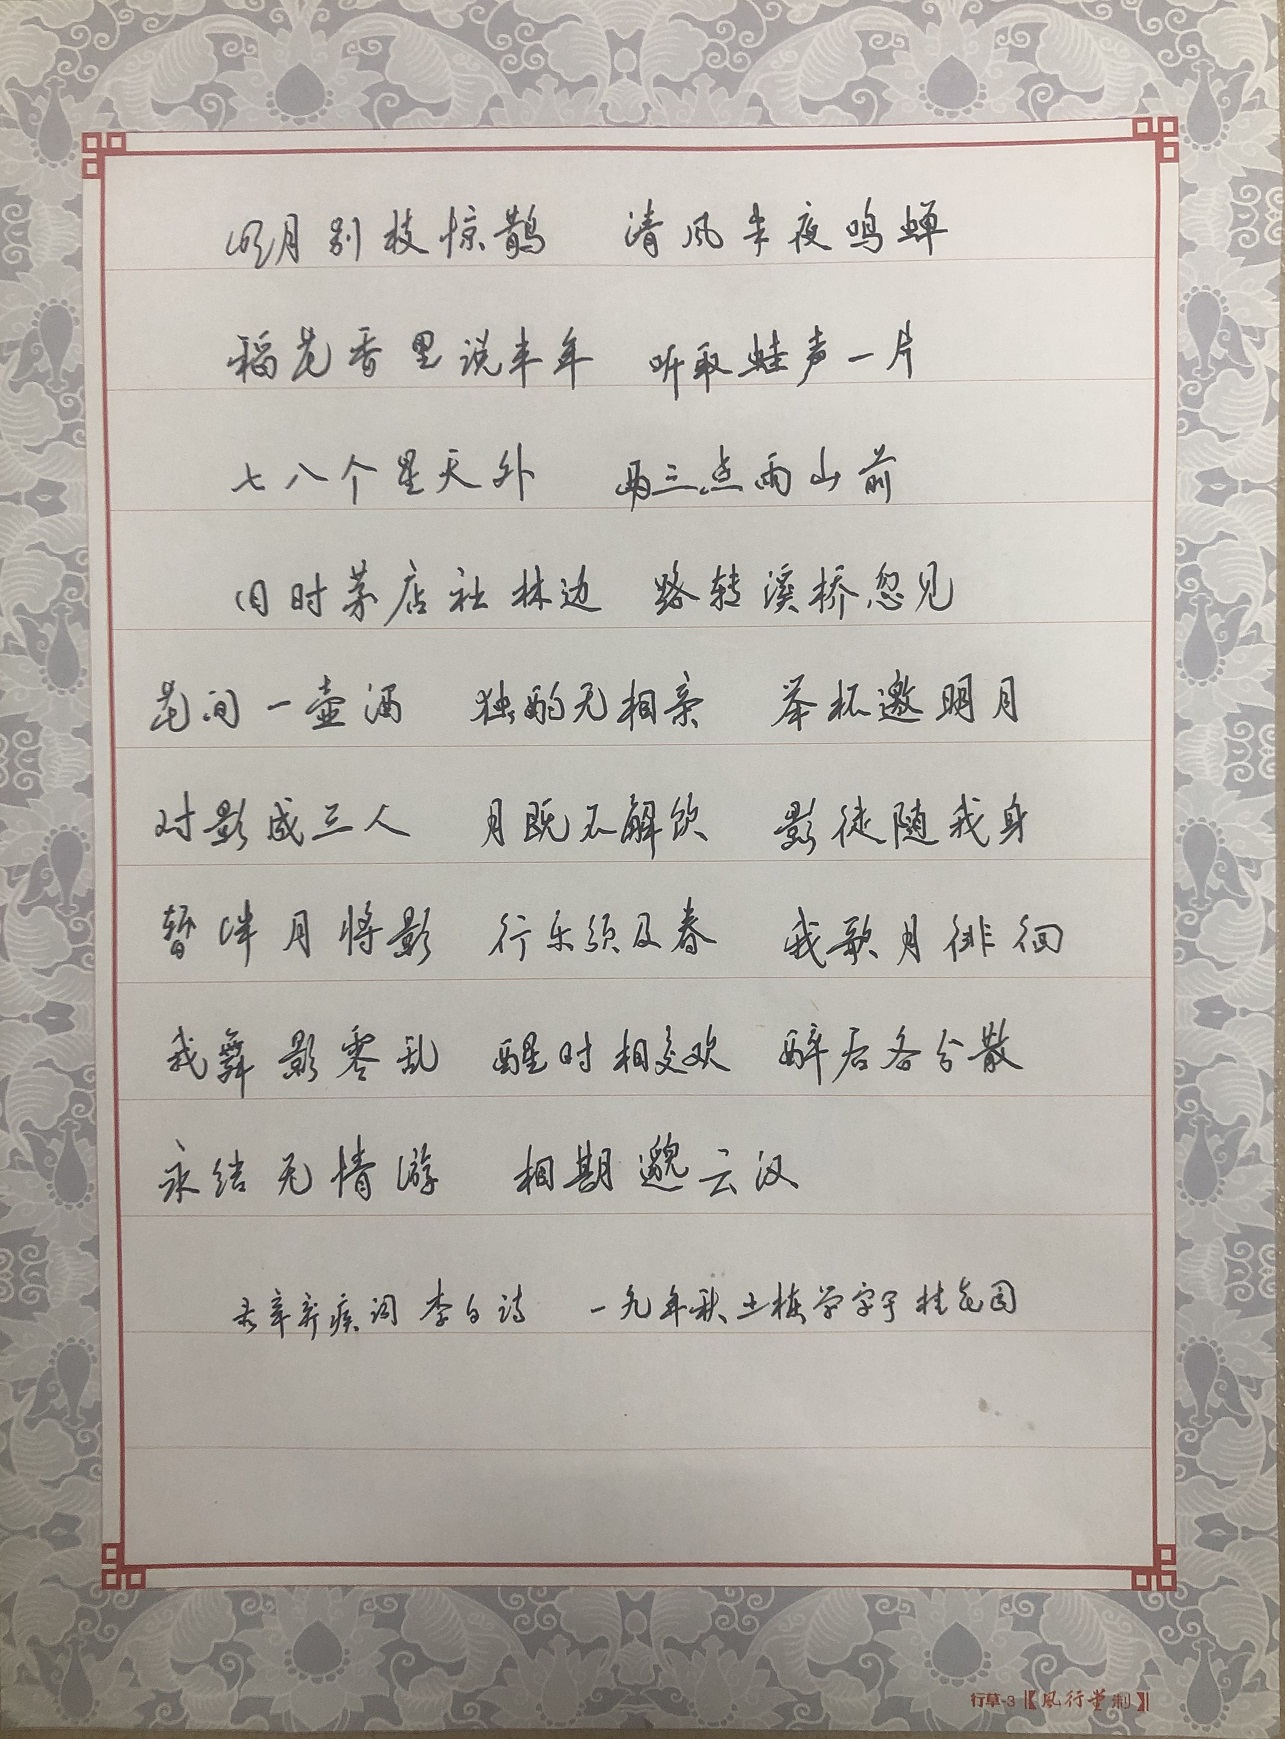 明月别枝惊鹊 清风半夜鸣蝉
稻花香里说丰年 听取蛙声一片
七八个星天外 两三点雨山前
旧时茅店社林边 路转溪桥忽见
花间一壶酒 独酌无相亲 举杯邀明月
对影成三人 月既不解饮 影徒随我身
暂伴月将影 行乐须及春 我歌月徘徊
我舞影零乱 醒时相交欢 醉后各分散
永结无情游 相期邈云汉
录辛弃疾词 李白诗 一九年秋 土栋学字于桂花园
行草-3 【风行堂制】